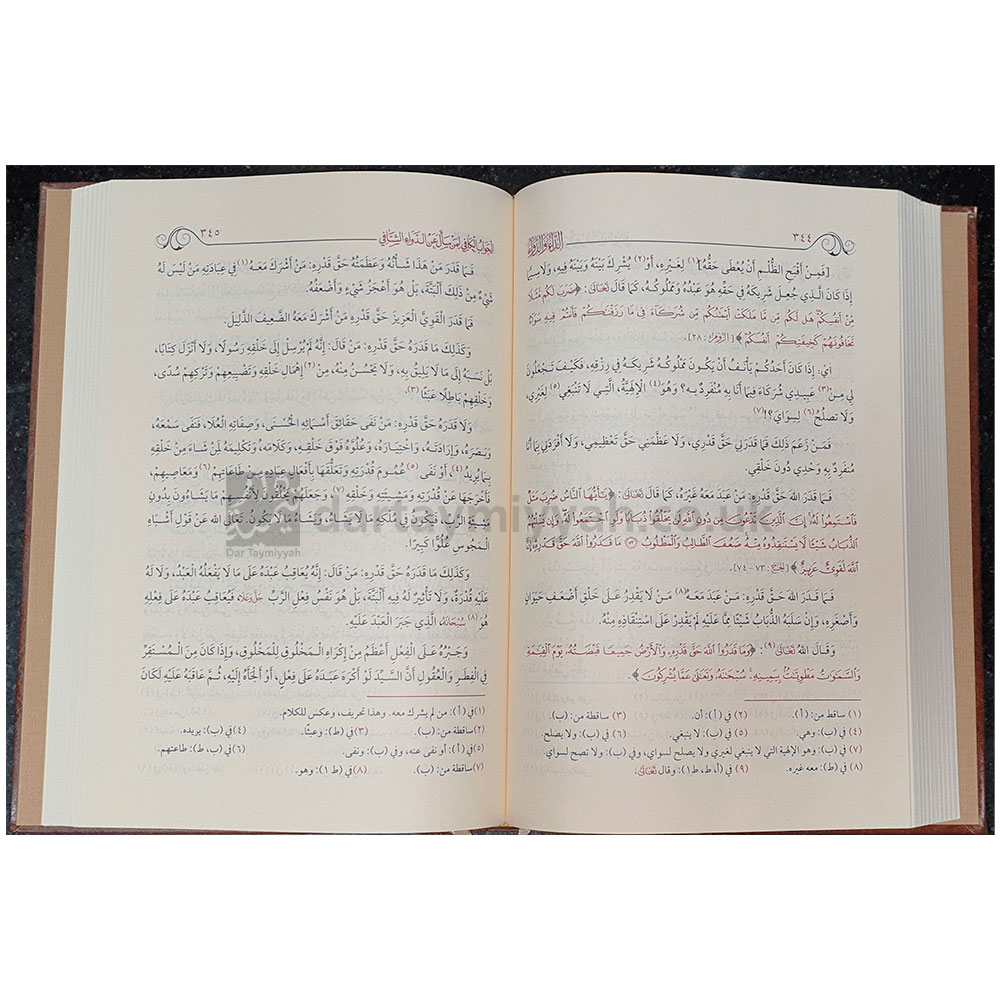 ٣٤٤
الدَّاءُ وَالدَّوَاءُ
[فَمِنْ أَقْبَحِ الظُّلْمِ أَنْ يُعْطَى حَقُّهُ](١) لِغَيْرِهِ، أَوْ(٢) يُشْرِكَ بَيْنَهُ وَبَيْنَهُ فِيهِ، وَلَا سِيَّمَا
إِذَا كَانَ الَّذِي جُعِلَ شَرِيكَهُ فِي حَقِّهِ هُوَ عَبْدُهُ وَمَمْلُوكُهُ، كَمَا قَالَ تَعَالَىٰ: ﴿ضَرَبَ لَكُم مَّثَلًا
مِّنْ أَنفُسِكُمْ هَل لَّكُم مِّن مَّا مَلَكَتْ أَيْمَٰنُكُم مِّن شُرَكَآءَ فِى مَا رَزَقْنَٰكُمْ فَأَنتُمْ فِيهِ سَوَآءٌ
تَخَافُونَهُمْ كَخِيفَتِكُمْ أَنفُسَكُمْ﴾ [الرُّوم: ٢٨].
أي: إِذَا كَانَ أَحَدُكُمْ يَأْنَفُ أَنْ يَكُونَ مَمْلُوكُهُ شَرِيكَهُ فِي رِزْقِهِ، فَكَيْفَ تَجْعَلُونَ
لِي مِنْ(٣) عَبِيدِي شُرَكَاءَ فِيمَا أَنَا بِهِ مُنْفَرِدٌ بِهِ؟ وَهُوَ(٤) الْإِلَهِيَّةُ، الَّتِي لَا تَنْبَغِي(٥) لِغَيْرِي،
وَلَا تَصْلُحُ(٦) لِسِوَايَ؟!(٧)
فَمَنْ زَعَمَ ذَلِكَ فَمَا قَدَرَنِي حَقَّ قَدْرِي، وَلَا عَظَّمَنِي حَقَّ تَعْظِيمِي، وَلَا أَفْرَدَنِي بِمَا أَنَا
مُنْفَرِدٌ بِهِ وَحْدِي دُونَ خَلْقِي.
فَمَا قَدَرَ اللهَ حَقَّ قَدْرِهِ: مَنْ عَبَدَ مَعَهُ غَيْرَهُ، كَمَا قَالَ تَعَالَىٰ: ﴿يَٰٓأَيُّهَا ٱلنَّاسُ ضُرِبَ مَثَلٌ
فَٱسْتَمِعُوا۟ لَهُۥٓ إِنَّ ٱلَّذِينَ تَدْعُونَ مِن دُونِ ٱللَّهِ لَن يَخْلُقُوا۟ ذُبَابًا وَلَوِ ٱجْتَمَعُوا۟ لَهُۥ وَإِن يَسْلُبْهُمُ
ٱلذُّبَابُ شَيْـًٔا لَّا يَسْتَنقِذُوهُ مِنْهُ ضَعُفَ ٱلطَّالِبُ وَٱلْمَطْلُوبُ ۝٧٣ مَا قَدَرُوا۟ ٱللَّهَ حَقَّ قَدْرِهِۦٓ إِنَّ
ٱللَّهَ لَقَوِىٌّ عَزِيزٌ﴾ [الحج: ٧٣-٧٤].
فَمَا قَدَرَ اللهَ حَقَّ قَدْرِهِ: مَنْ عَبَدَ مَعَهُ(٨) مَنْ لَا يَقْدِرُ عَلَى خَلْقِ أَضْعَفِ حَيَوَانٍ
وَأَصْغَرِهِ، وَإِنْ سَلَبَهُ الذُّبَابُ شَيْئًا مِمَّا عَلَيْهِ لَمْ يَقْدِرْ عَلَى اسْتِنْقَاذِهِ مِنْهُ.
وَقَالَ اللهُ تَعَالَىٰ(٩): ﴿وَمَا قَدَرُوا۟ ٱللَّهَ حَقَّ قَدْرِهِۦ وَٱلْأَرْضُ جَمِيعًا قَبْضَتُهُۥ يَوْمَ ٱلْقِيَٰمَةِ
وَٱلسَّمَٰوَٰتُ مَطْوِيَّٰتٌۢ بِيَمِينِهِۦ سُبْحَٰنَهُۥ وَتَعَٰلَىٰ عَمَّا يُشْرِكُونَ﴾.
(١) ساقط من: (أ). (٢) في (أ): أن. (٣) ساقطة من: (ب).
(٤) في (ب): وهي. (٥) في (ب): لا ينبغي. (٦) في (ب): ولا يصلح.
(٧) في (ب): وهو الإلهية التي لا ينبغي لغيري ولا يصلح لسواي، وفي (ب): ولا تصح لسواي.
(٨) في (ط): معه غيره. (٩) في (أ، ط، ط١): وقال تعالى.
الجَوَابُ الكَافِي لِمَنْ سَأَلَ عَنِ الدَّوَاءِ الشَّافِي
٣٤٥
فَمَا قَدَرَ مَنْ هَذَا شَأْنُهُ وَعَظَمَتُهُ حَقَّ قَدْرِهِ: مَنْ أَشْرَكَ مَعَهُ(١) فِي عِبَادَتِهِ مَنْ لَيْسَ لَهُ
شَيْءٌ مِنْ ذَلِكَ أَلْبَتَّةَ، بَلْ هُوَ أَعْجَزُ شَيْءٍ وَأَضْعَفُهُ.
فَمَا قَدَرَ الْقَوِيَّ الْعَزِيزَ حَقَّ قَدْرِهِ مَنْ أَشْرَكَ مَعَهُ الضَّعِيفَ الذَّلِيلَ.
وَكَذَلِكَ مَا قَدَرَهُ حَقَّ قَدْرِهِ: مَنْ قَالَ: إِنَّهُ لَمْ يُرْسِلْ إِلَى خَلْقِهِ رَسُولًا، وَلَا أَنْزَلَ كِتَابًا،
بَلْ نَسَبَهُ إِلَى مَا لَا يَلِيقُ بِهِ، وَلَا يَحْسُنُ مِنْهُ، مِنْ(٢) إِهْمَالِ خَلْقِهِ وَتَضْيِيعِهِمْ وَتَرْكِهِمْ سُدًى،
وَخَلْقِهِمْ بَاطِلًا عَبَثًا(٣).
وَلَا قَدَرَهُ حَقَّ قَدْرِهِ: مَنْ نَفَى حَقَائِقَ أَسْمَائِهِ الْحُسْنَى، وَصِفَاتِهِ الْعُلَا، فَنَفَى سَمْعَهُ،
وَبَصَرَهُ، وَإِرَادَتَهُ، وَاخْتِيَارَهُ، وَعُلُوَّهُ فَوْقَ خَلْقِهِ، وَكَلَامَهُ، وَتَكْلِيمَهُ لِمَنْ شَاءَ مِنْ خَلْقِهِ
بِمَا يُرِيدُ(٤)، أَوْ نَفَى(٥) عُمُومَ قُدْرَتِهِ وَتَعَلُّقَهَا بِأَفْعَالِ عِبَادِهِ مِنْ طَاعَاتِهِمْ(٦) وَمَعَاصِيهِمْ،
فَأَخْرَجَهَا عَنْ قُدْرَتِهِ وَمَشِيئَتِهِ وَخَلْقِهِ(٧)، وَجَعَلَهُمْ يَخْلُقُونَ لِأَنْفُسِهِمْ مَا يَشَاءُونَ بِدُونِ
مَشِيئَةِ الرَّبِّ، فَيَكُونُ فِي مُلْكِهِ مَا لَا يَشَاءُ، وَيَشَاءُ مَا لَا يَكُونُ. تَعَالَى اللهُ عَنْ قَوْلِ أَشْبَاهِ
الْمَجُوسِ عُلُوًّا كَبِيرًا.
وَكَذَلِكَ مَا قَدَرَهُ حَقَّ قَدْرِهِ: مَنْ قَالَ: إِنَّهُ يُعَاقِبُ عَبْدَهُ عَلَى مَا لَا يَفْعَلُهُ الْعَبْدُ، وَلَا لَهُ
عَلَيْهِ قُدْرَةٌ، وَلَا تَأْثِيرَ لَهُ فِيهِ أَلْبَتَّةَ، بَلْ هُوَ نَفْسُ فِعْلِ الرَّبِّ جَلَّ وَعَلَا، فَيُعَاقِبُ عَبْدَهُ عَلَى فِعْلِهِ
هُوَ(٨) سُبْحَانَهُ الَّذِي جَبَرَ الْعَبْدَ عَلَيْهِ.
وَجَبْرُهُ عَلَى الْفِعْلِ أَعْظَمُ مِنْ إِكْرَاهِ الْمَخْلُوقِ لِلْمَخْلُوقِ، وَإِذَا كَانَ مِنَ الْمُسْتَقِرِّ
فِي الْفِطَرِ وَالْعُقُولِ أَنَّ السَّيِّدَ لَوْ أَكْرَهَ عَبْدَهُ عَلَى فِعْلٍ، أَوْ أَلْجَأَهُ إِلَيْهِ، ثُمَّ عَاقَبَهُ عَلَيْهِ لَكَانَ
(١) في (أ): من لم يشرك معه. وهذا تحريف، وعكس للكلام.
(٢) ساقطة من: (ب). (٣) في (ط): وعبثًا. (٤) في (ب): يريده.
(٥) في (أ): أو نفى عنه، وفي (ب): ونفى. (٦) في (ب، ط): طاعتهم.
(٧) ساقطة من: (ب). (٨) في (ط١): وهو.
Dar Taymiyyah
dartaymiyyah.co.uk